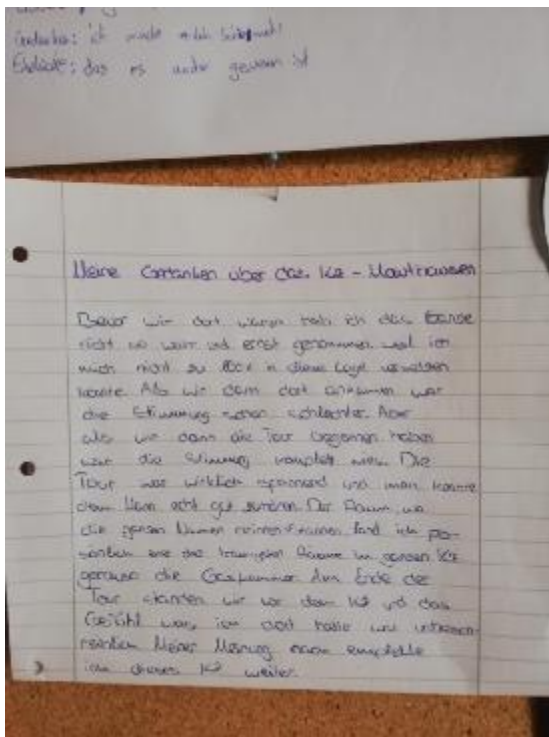 Gedanken: ich
Eindrücke: das es
Meine Gedanken über das KZ - Mauthausen
Bevor wir dort waren hab ich das Ganze
nicht so wahr und ernst genommen weil ich
mich nicht zu 100% in diese Lage versetzen
konnte. Als wir dann dort ankamen war
die Stimmung schon schlechter. Aber
als wir dann die Tour begonnen haben
war die Stimmung komplett weg. Die
Tour war wirklich spannend und man konnte
dem Mann echt gut zuhören. Der Raum wo
die ganzen Namen fand ich per-
sönlich eine der Räume im ganzen KZ
genauso die Gaskammer. Am Ende der
Tour standen wir vor dem KZ und das
Gefühl was ich dort hatte war
Meiner Meinung nach empfehle
ich dieses KZ weiter.